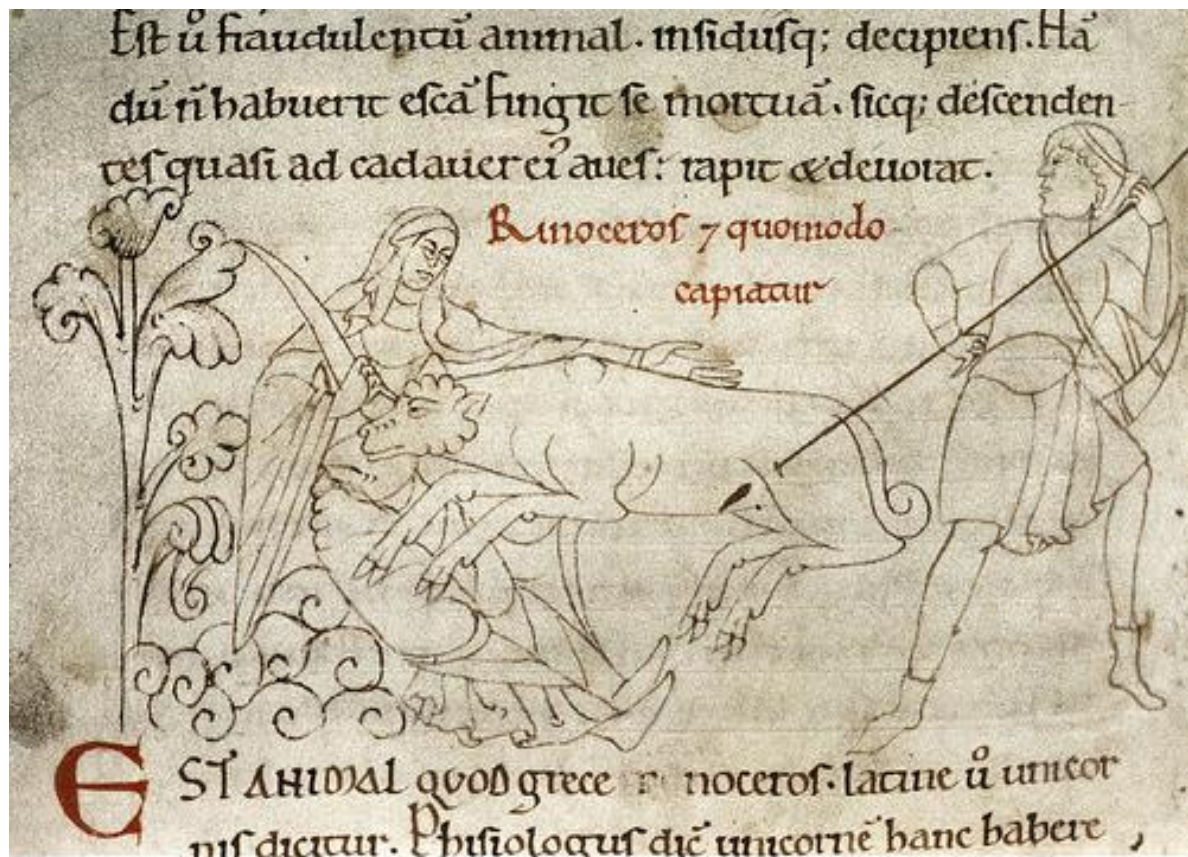 Est ů fraudulentū animal. insidiisq; decipiens. Hā
dū n̄ habuerit escā fingit se mortuā. sicq; descenden
tes quasi ad cadauer ei᾽ aues: rapit & deuorat.
Rinoceros ⁊ quomodo
capiatur
EST ANIMAL QUOD grece r noceros. latine ů unicor
nis dicitur. Phisiologus dic̄ unicornē hanc habere